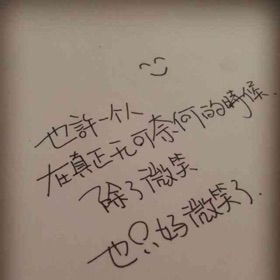 也許一个人
在真正无可奈何的時候.
除了微笑、
也只好微笑了.